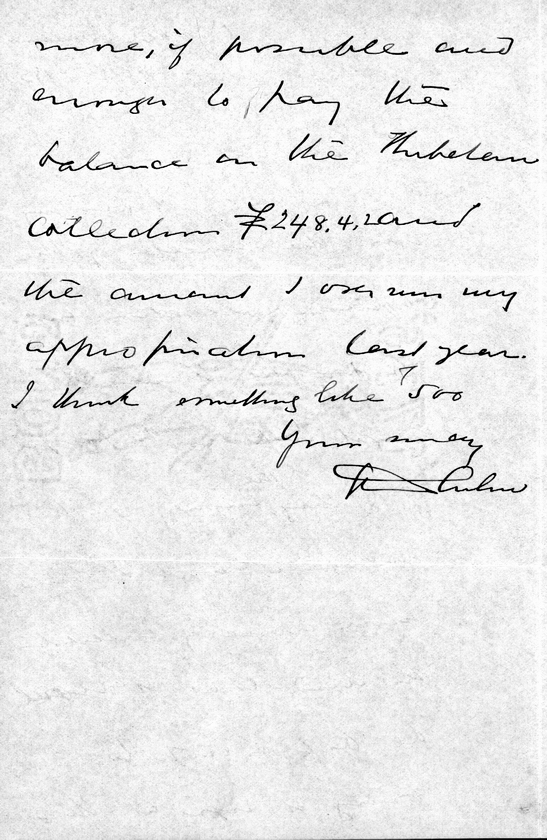 more, if possible and
enough to pay the
balance on the Thibetan
Collection £248.4.2 and
the amount I over run my
appropriation last year.
I think something like 7500
Yours
Culin